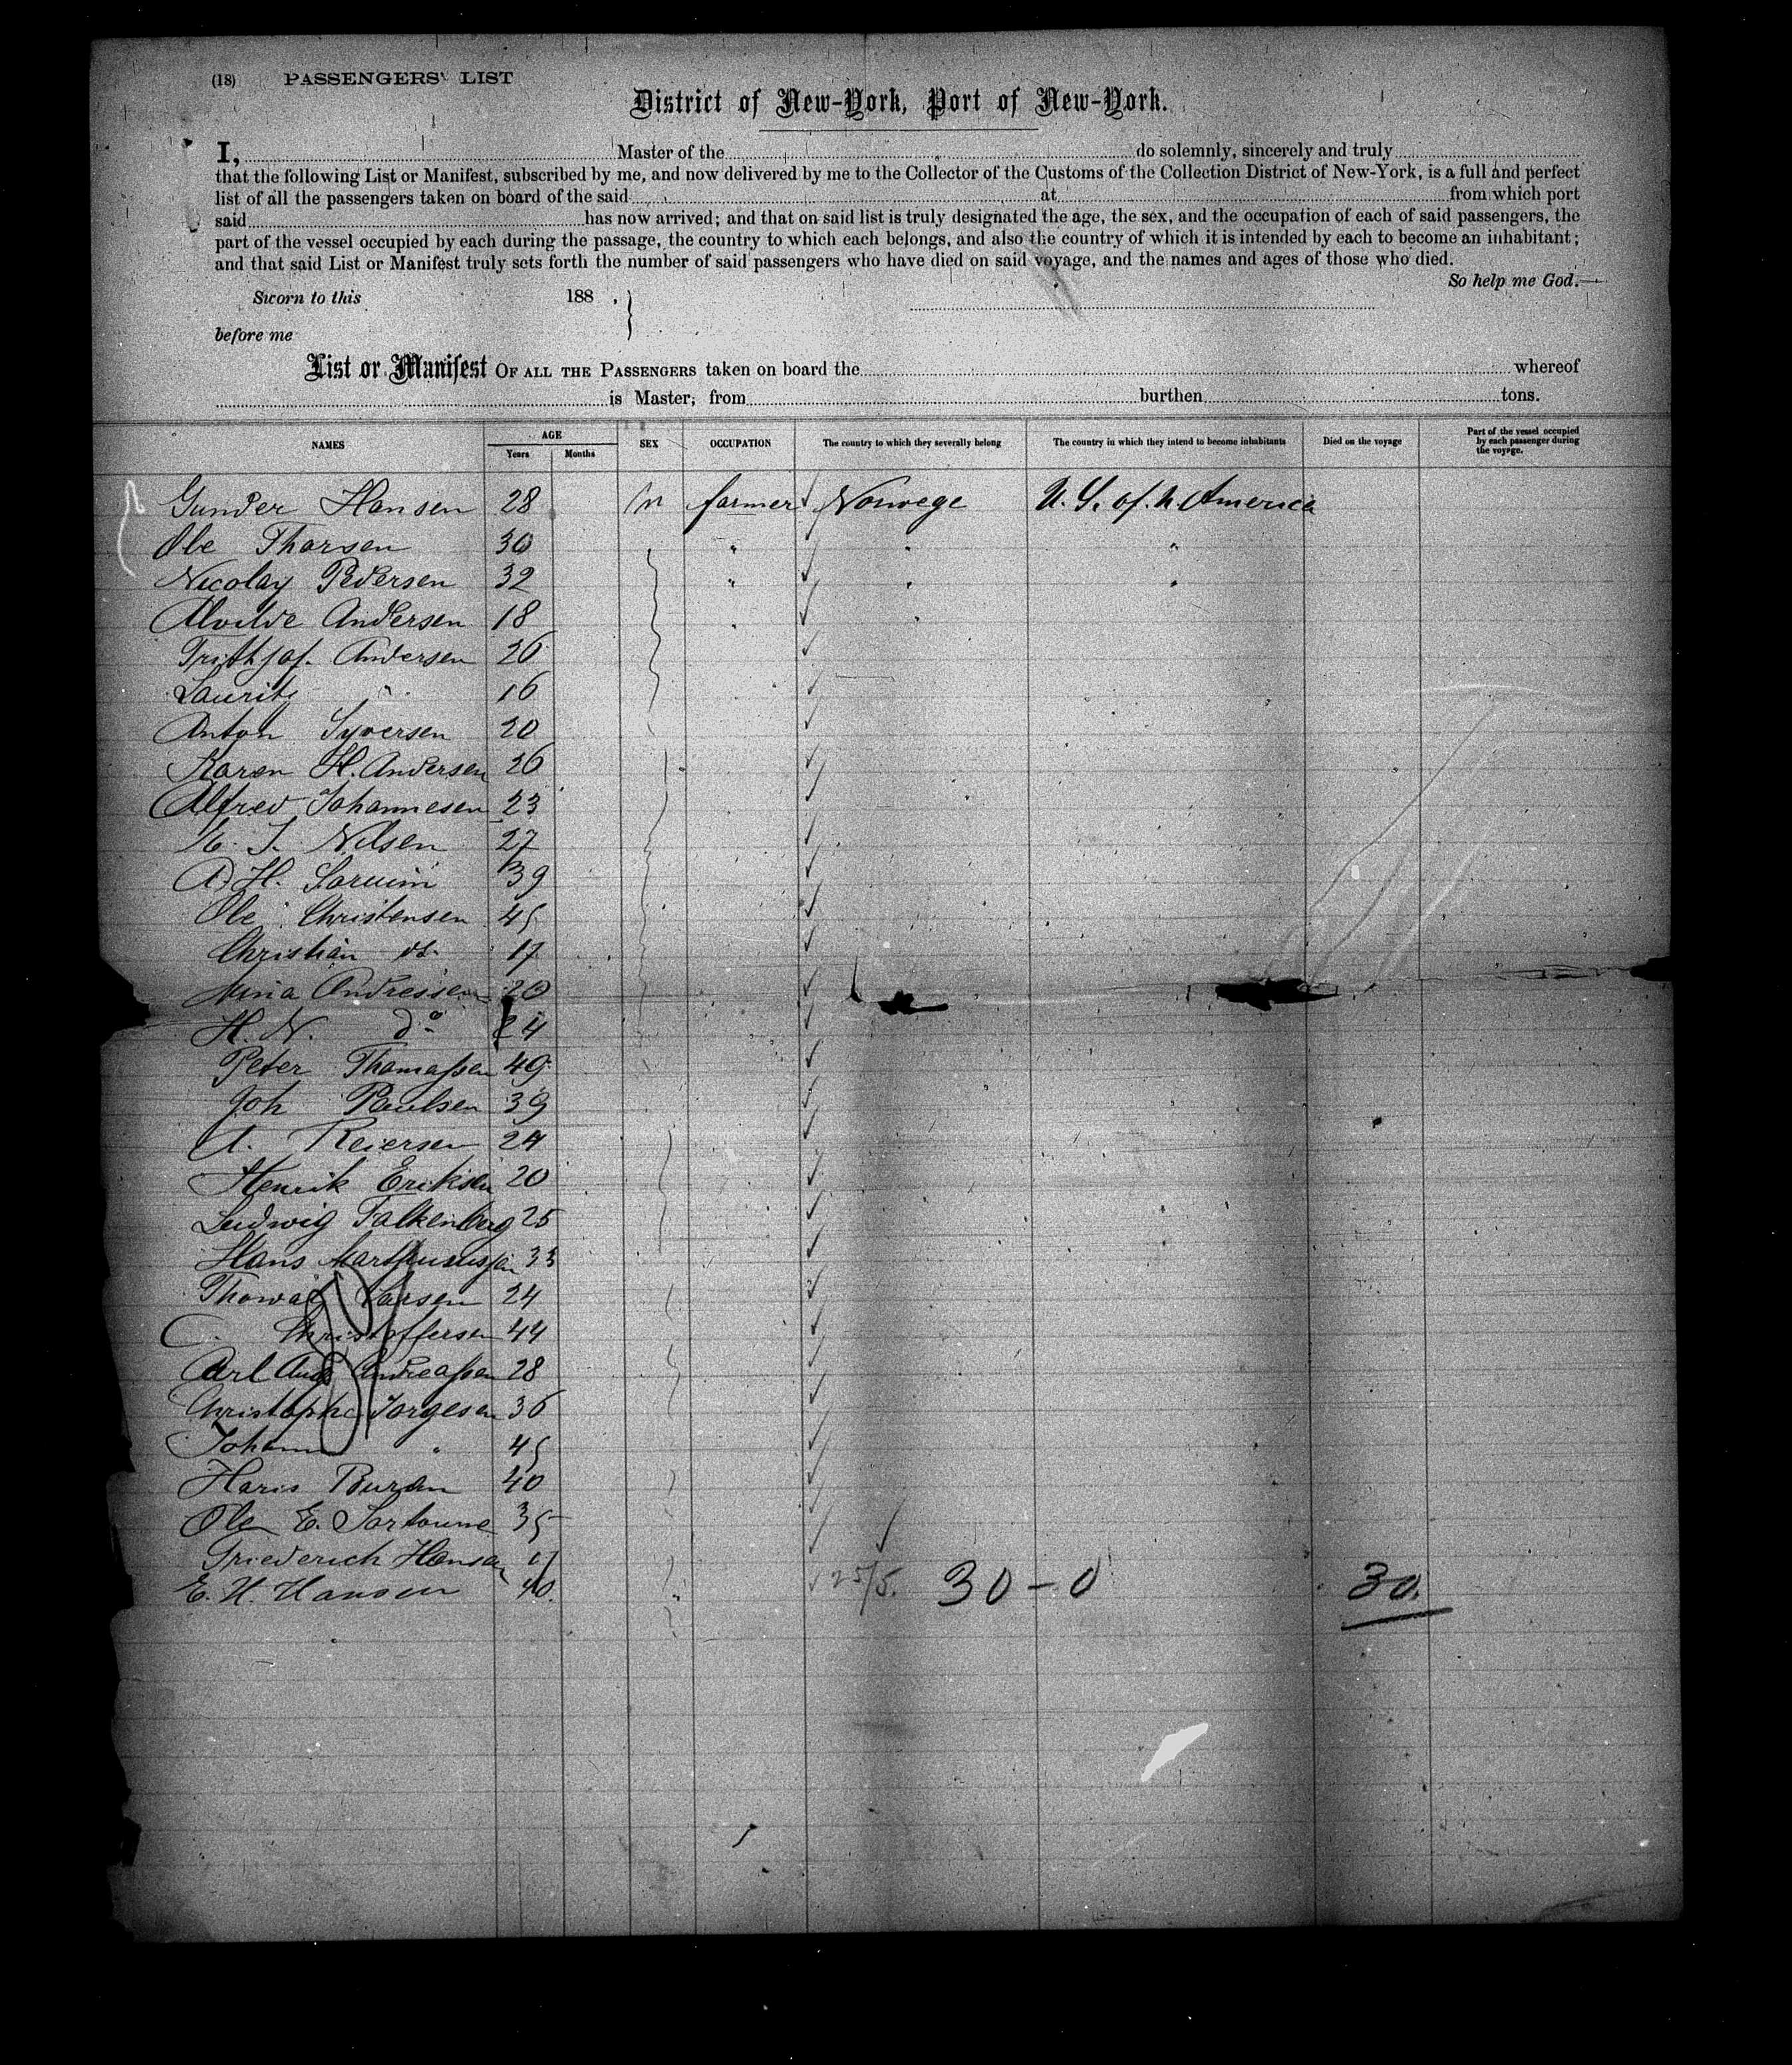 (18) PASSENGERS' LIST
District of New-York, Port of New-York.
I, Master of the do solemnly, sincerely and truly
that the following List or Manifest, subscribed by me, and now delivered by me to the Collector of the Customs of the Collection District of New-York, is a full and perfect
list of all the passengers taken on board of the said at from which port
said has now arrived; and that on said list is truly designated the age, the sex, and the occupation of each of said passengers, the
part of the vessel occupied by each during the passage, the country to which each belongs, and also the country of which it is intended by each to become an inhabitant;
and that said List or Manifest truly sets forth the number of said passengers who have died on said voyage, and the names and ages of those who died.
So help me God.
Sworn to this 188 .
before me
List or Manifest OF ALL THE PASSENGERS taken on board the whereof
is Master; from burthen tons.
NAMES AGE Years Months SEX OCCUPATION The country to which they severally belong The country in which they intend to become inhabitants Died on the voyage Part of the vessel occupied by each passenger during the voyage.
Gunder Hansen 28 m farmer Norwege U. S. of N. America
Ole Thorsen 30 " " "
Nicolay Pedersen 32 " " "
Alvilde Andersen 18 " "
Frithjof. Andersen 26
Lauritz " 16
Anton Syversen 20
Karen H. Andersen 26
Alfred Johannesen 23
Nilsen 27
A. H. 39
Ole Christensen 45
Christian do. 17
Andressen 20
H. N. do 24
Peter Thomassen 49
Joh Paulsen 39
A. Reiersen 24
Henrik Eriksen 20
Ludwig Falkenberg 25
Hans 33
Larsen 24
C. Christoffersen 44
Carl Aug Andreassen 28
Jorgesen 36
Johann " 45
Buran 40
Ole E. 35
Friederich Hansen
E. H. Hansen 40. " 25/5. 30 - 0 30.